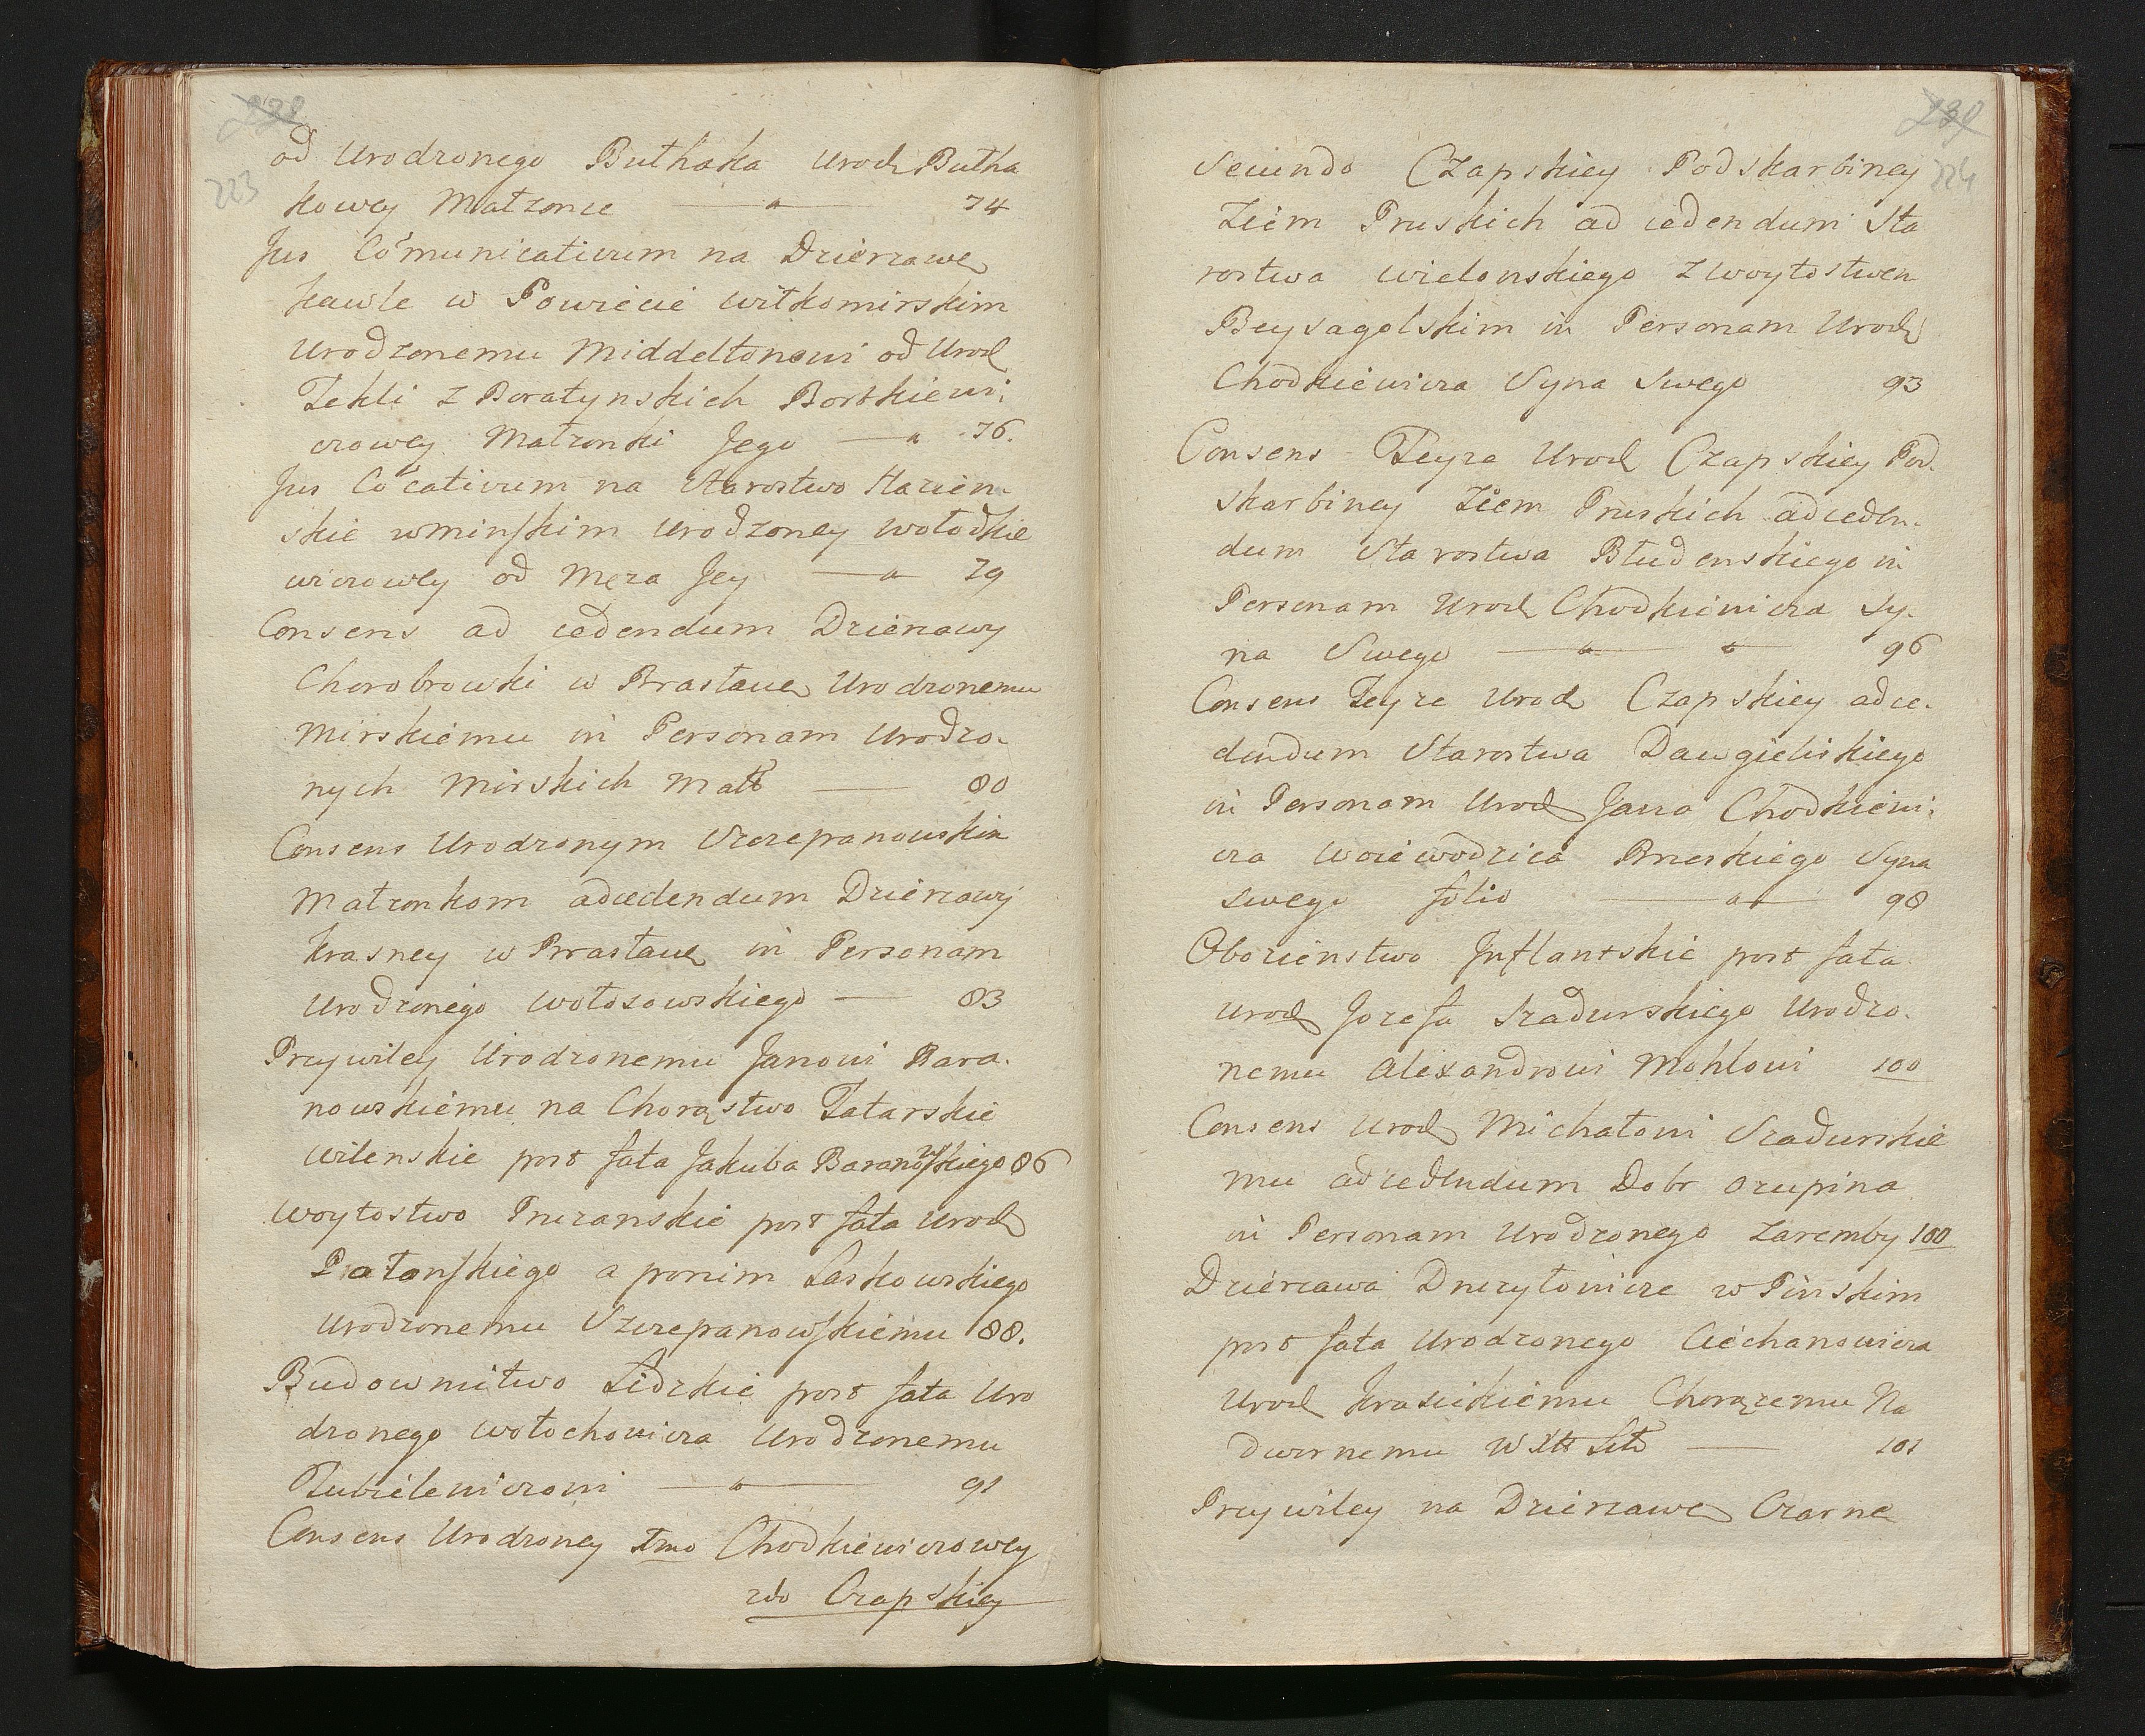 od Urodzonego Buthaka Urod Butha
223
kowey Małzonce 74
Jus Comunicativum na Dzierzawę
Kawle w Powiecie Wiłkomirskim
Urodzonemu Middeltonowi od Urod
Tekli z Boratynskich Bortkiewi,
czowey Małzonki Jego 76.
Jus Cōcativum na Starostwo Hacien-
skie w Minskim Urodzoney Wołodkie
wiczowey od Męza Jey 79
Consens ad cedendum Dzierzawy
Chorobrowki w Brasławę Urodzonemu
Mirskiemu in Personam Urodzo-
nych Mirskich Małł 80
Consens Urodzonym Szczepanowskim
Małzonkom ad cedendum Dzierzawy
Krasney w Brasławę in Personam
Urodzonego Wołosowskiego 83
Przywiley Urodzonemu Janowi Bara-
nowskiemu na Chorąstwo Tatarskie
Wilenskie post fata Jakuba Baranowskiego 86
Woytostwo Puzanskie post fata Urod
Płatonskiego a ponim Laskowskiego
Urodzonemu Szczepanowskiemu 88.
Budownitwo Lidzkie post fata Uro
dzonego Wołochowicza Urodzonemu
Kubilewiczowi 91
Consens Urodzoney 1mo Chodkiewiczowey
2do Czapskiey
230
224
Secundo Czapskiey Podskarbiney
Ziem Pruskich ad cedendum Sta
rostwa Wielonskiego z Woytostwem
Beysagolskim in Personam Urod
Chodkiewicza Syna Swego 93
Consens Teyze Urod Czapskiey Pod-
skarbiney Ziem Pruskich ad ceden-
dum Starostwa Błudenskiego in
Personam Urod Chodkiewicza Sy-
na Swego 96
Consens Teyze Urod Czapskiey ad ce-
dendum Starostwa Dawgieliskiego
in Personam Urod Jana Chodkiewi,
cza Woiewodzica Brzeskiego Syna
swego folio 98
Obozienstwo Inflantskie post fata
Urod Jozefa Szadurskiego Urodzo-
nemu Alexandrowi Mohlowi 100
Consens Urod Michałowi Szadurskie
mu ad cedendum Dobr Ozupina
in Personam Urodzonego Zaremby 100
Dzierzawa Duczyłowicze w Pinskim
post fata Urodzonego Ciechanowicza
Urod Krasickiemu Chorązemu Na
dwornemu W Xtt Litt 101
Przywiley na Dzierzawę Czarne